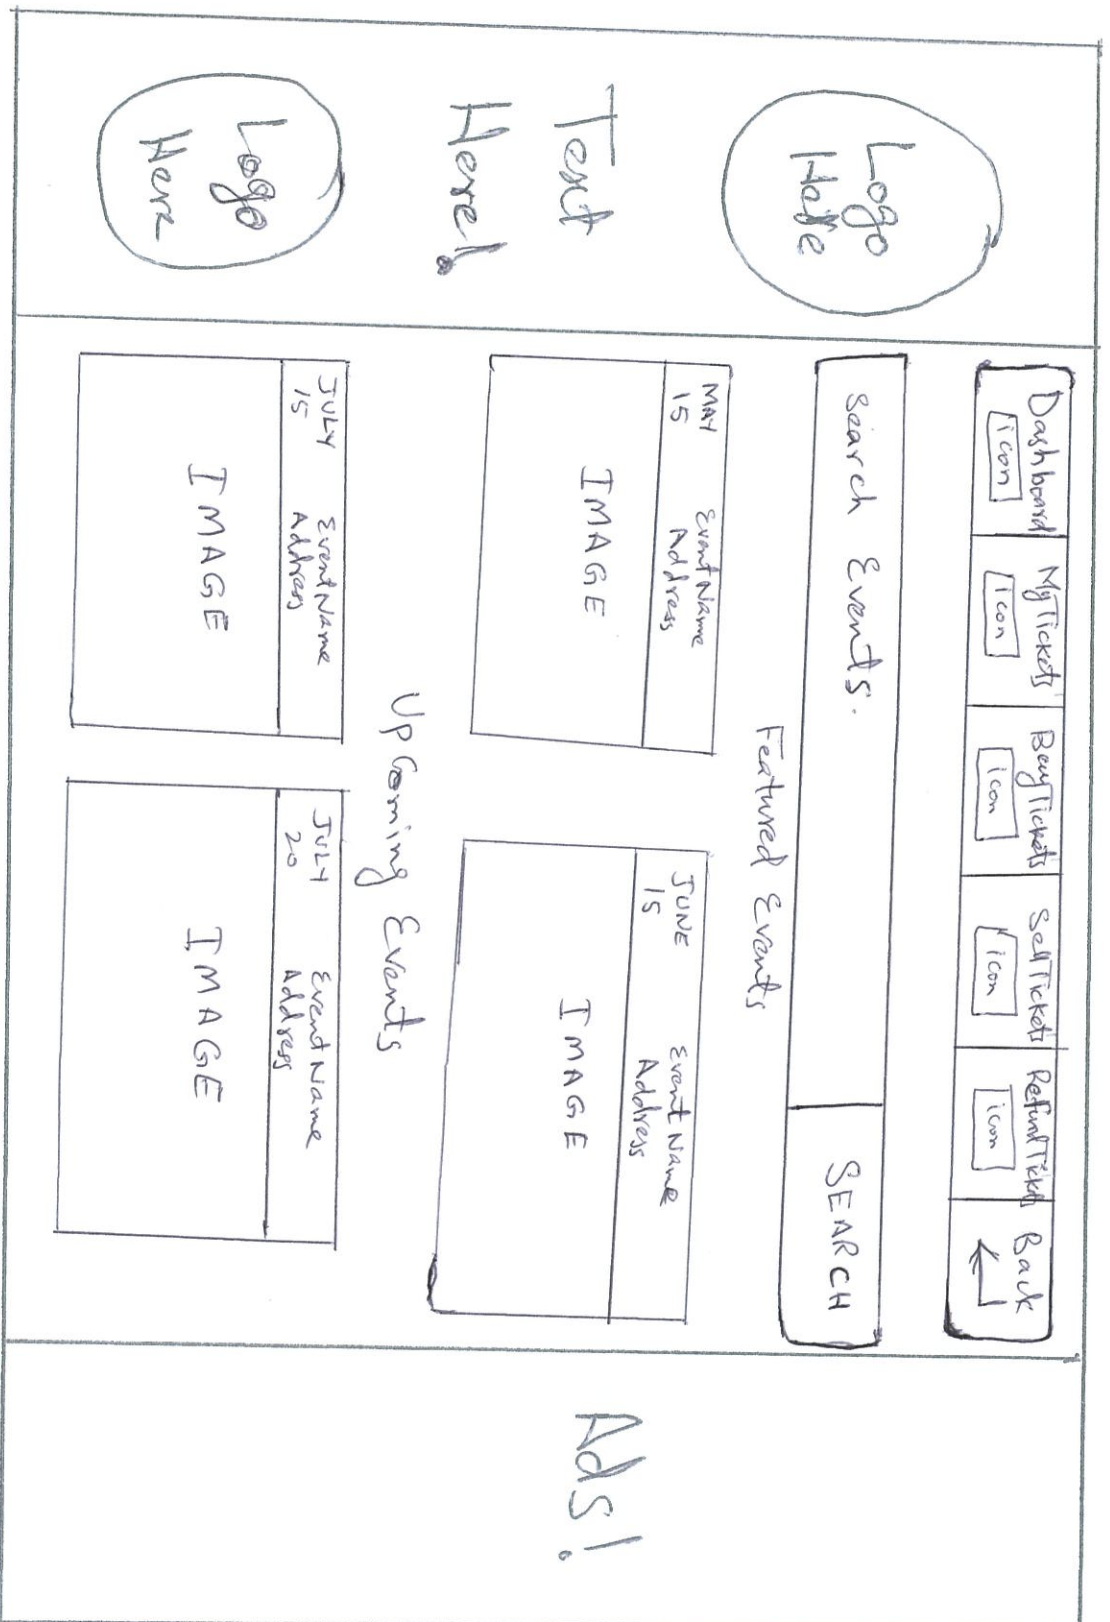 Logo
Here
Text
Here!
Logo
Here
Dashboard
icon
MyTickets
icon
BuyTickets
icon
SellTickets
icon
RefundTickets
icon
Back
Search Events.
SEARCH
Featured Events
MAY
15
EventName
Address
IMAGE
JUNE
15
Event Name
Address
IMAGE
UpComing Events
JULY
15
EventName
Address
IMAGE
JULY
20
Event Name
Address
IMAGE
Ads!